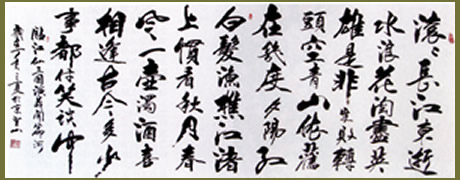 滾滾長江東逝
水浪花淘盡英
雄是非成敗轉
頭空青山依舊
在幾度夕陽紅
白髮漁樵江渚
上慣看秋月春
風一壺濁酒喜
相逢古今多少
事都付笑談中
臨江仙三國演義開篇詞